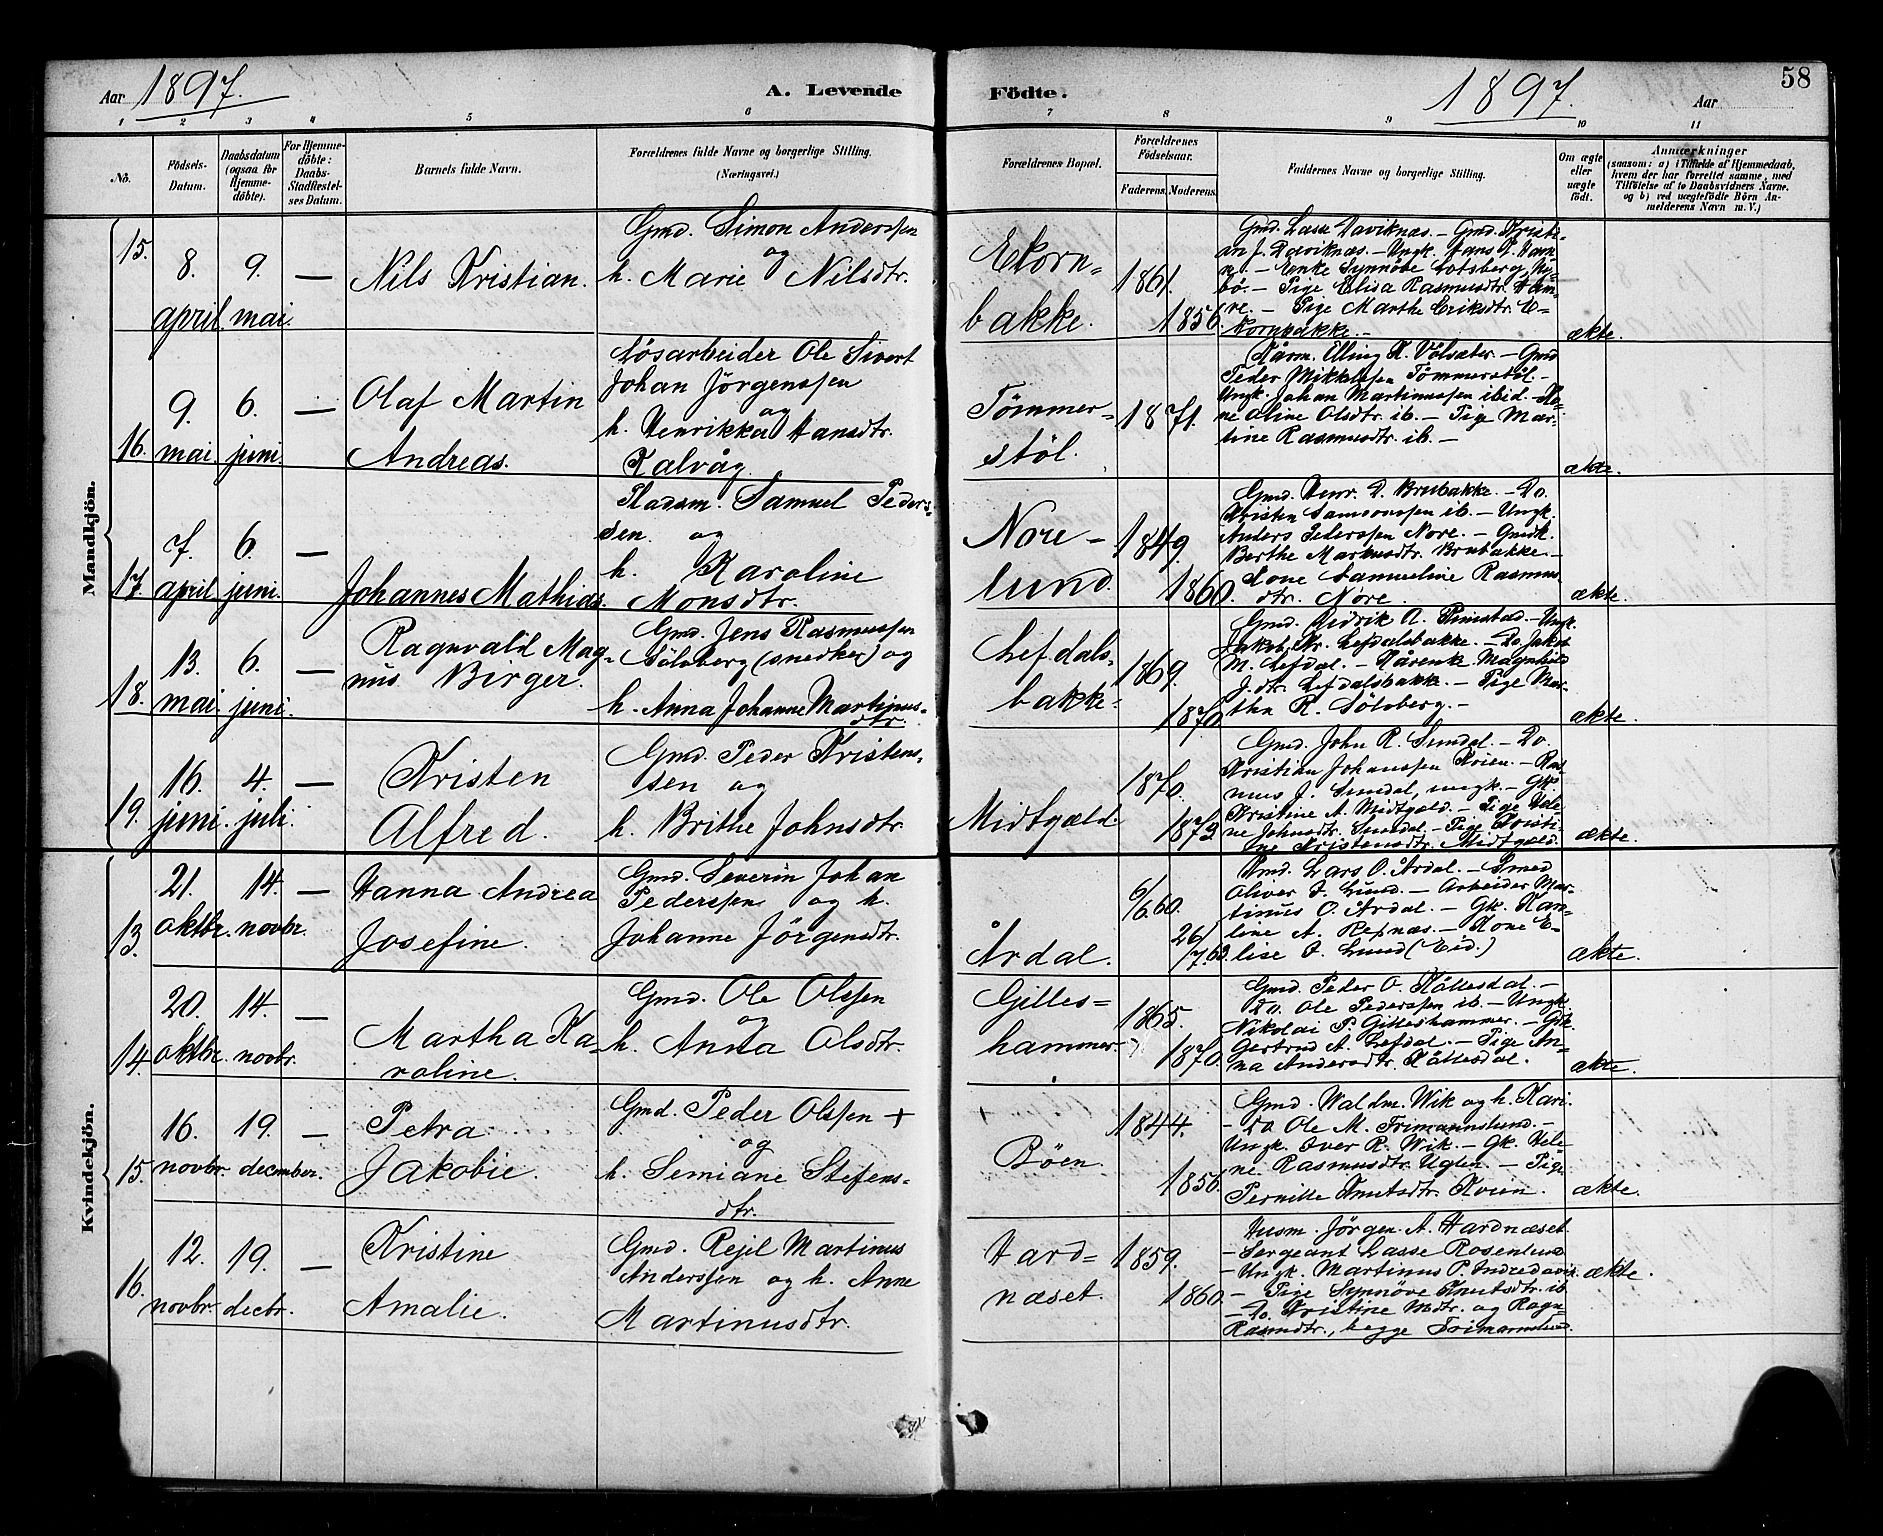 Aar 1897.
A. Levende Födte.
1897.
Aar
58
1 2 3 4 5 6 7 8 9 10 11
No.
Födsels-Datum.
Daabsdatum (ogsaa for Hjemme-döbte).
For Hjemme-döbte: Daabs-Stadfæstel-ses Datum.
Barnets fulde Navn.
Forældrenes fulde Navne og borgerlige Stilling.
(Næringsvei.)
Forældrenes Bopæl.
Forældrenes Födselsaar.
Faderens. Moderens.
Faddernes Navne og borgerlige Stilling.
Om ægte eller uægte födt.
Anmærkninger
(saasom: a) i Tilfælde af Hjemmedaab,
hvem der har forrettet samme, med
Tilföielse af to Daabsvidners Navne,
og b) ved uægtefödte Börn An-
melderens Navn m. V.)
Mandkjön.
15.
8. april
9. mai.
—
Nils Kristian.
Gmd. Simon Anderssen
og
h. Marie Nilsdtr.
Ekorn-
bakke.
1861.
1856.
Gmd. Lasse Daviknæs. — Gmd. Kristi-
an J. Daviknæs. — Ungk. Hans
— Enke Synnöve Lotsberg, Ny-
bö. — Pige Elisa Rasmusdtr. Ham-
re. — Pige Marthe Eriksdtr. E-
kornbakke. —
ækte.
16.
9. mai.
6. juni.
—
Olaf Martin
Andreas.
Lösarbeider Ole Sivert
Johan Jörgenssen
og
h. Henrikka Hansdtr.
Kalvåg.
Tömmer-
stöl.
1871.
Elling K. Völsæter. — Gmd
Peder Mikkelssen Tömmerstöl. —
Ungk. Johan Martinussen ibid. — Ko-
ne Oline Olsdtr. ib. — Pige Mar-
tine Rasmusdtr. ib. —
ækte.
17.
7. april
6. juni.
—
Johannes Mathias.
Pladsm. Samuel Peders-
sen og
h. Karoline
Monsdtr.
Nore-
lund.
1849.
1860.
Gmd. Henr. D. Brubakke. — Do.
Kristen Samsonssen ib. — Ungk.
Anders Pederssen Nore. — Gmdk.
Berthe Markusdtr. Brubakke. —
Kone Samueline Rasmus
dtr. Nore.
ækte.
18.
13. mai.
6. juni.
—
Ragnvald Mag-
nus Birger.
Gmd. Jens Rasmussen
Sölvberg (snedker) og
h. Anna Johanne Martinus-
dtr.
Lefdals-
bakke.
1869.
1870.
Gmd. Didrik A. Rimstad. — Ungk.
Jakob Kr. Lefdalsbakke. — Do. Jakob
M. Lefdal. — Kårenk. Magnhild
J. dtr. Lefdalsbakke. — Pige Mar-
tha R. Sölvberg. —
ækte.
19.
16. juni.
4. juli.
—
Kristen
Alfred.
Gmd. Peder Kristens-
sen og
h. Brithe Johnsdtr.
Midtgæld.
1870.
1873.
Gmd. John R. Sundal. — Do.
Kristian Johanssen Kvien. — Ras
mus J. Sundal, ungk. — Gk.
Kristine A. Midtgæld. — Pige Hele-
ne Johnsdtr. Sundal. — Pige Kristi-
ne Kristensdtr. Midtgæld.
ækte.
Kvindekjön.
13.
21. oktbr.
14. novbr.
—
Hanna Andrea
Josefine.
Gmd. Severin Johan
Pederssen og h.
Johanne Jörgensdtr.
Årdal.
6/6.60.
26/7.63.
Gmd. Lars O. Årdal. — Smed
Oliver J. Lund. — Arbeider Mar-
tinus O. Årdal. — Gk. Han-
line A. Refnæs. — Kone E-
lise J. Lund (Eid.)
ækte.
14.
20. oktbr.
14. novbr.
—
Martha Ka-
roline.
Gmd. Ole Olssen
og
h. Anna Olsdtr.
Gilles-
hammer.
1865.
1870.
Gmd. Peder O. Hållesdal. —
Do. Ole Pederssen ib. — Ungk.
Nikolai P. Gilleshammer. — Gk.
Gertrud A. Lefdal. — Pige An-
na Andersdtr. Hållesdal.
ækte.
15.
16. novbr.
19. december.
—
Petra
Jakobie.
Gmd. Peder Olssen +
og
h. Semiane Stefens-
dtr.
Böen.
1844.
1856.
Gmd. Waldm. Wik og h. Kari.
— Do Ole M. Frimannslund. —
Ungk. Iver R. Wik. — Gk. Hele-
ne Rasmusdtr. Uglen. — Pige
Pernille Knutsdtr. Kvien.
ækte.
16.
12. novbr.
19. decbr.
—
Kristine
Amalie.
Gmd. Rejel Martinus
Anderssen og h. Anne
Martinusdtr.
Hard-
næset.
1859.
1860.
Husm. Jörgen A. Hardnæset.
— Sergeant Lasse Rosenlund
— Ungk. Martinus P. Indredavik.
— Pige Synnöve Knutsdtr. ib
— Do. Kristine Mdtr. og Ragn-
Rasmdtr., begge Frimannslund.
ækte.